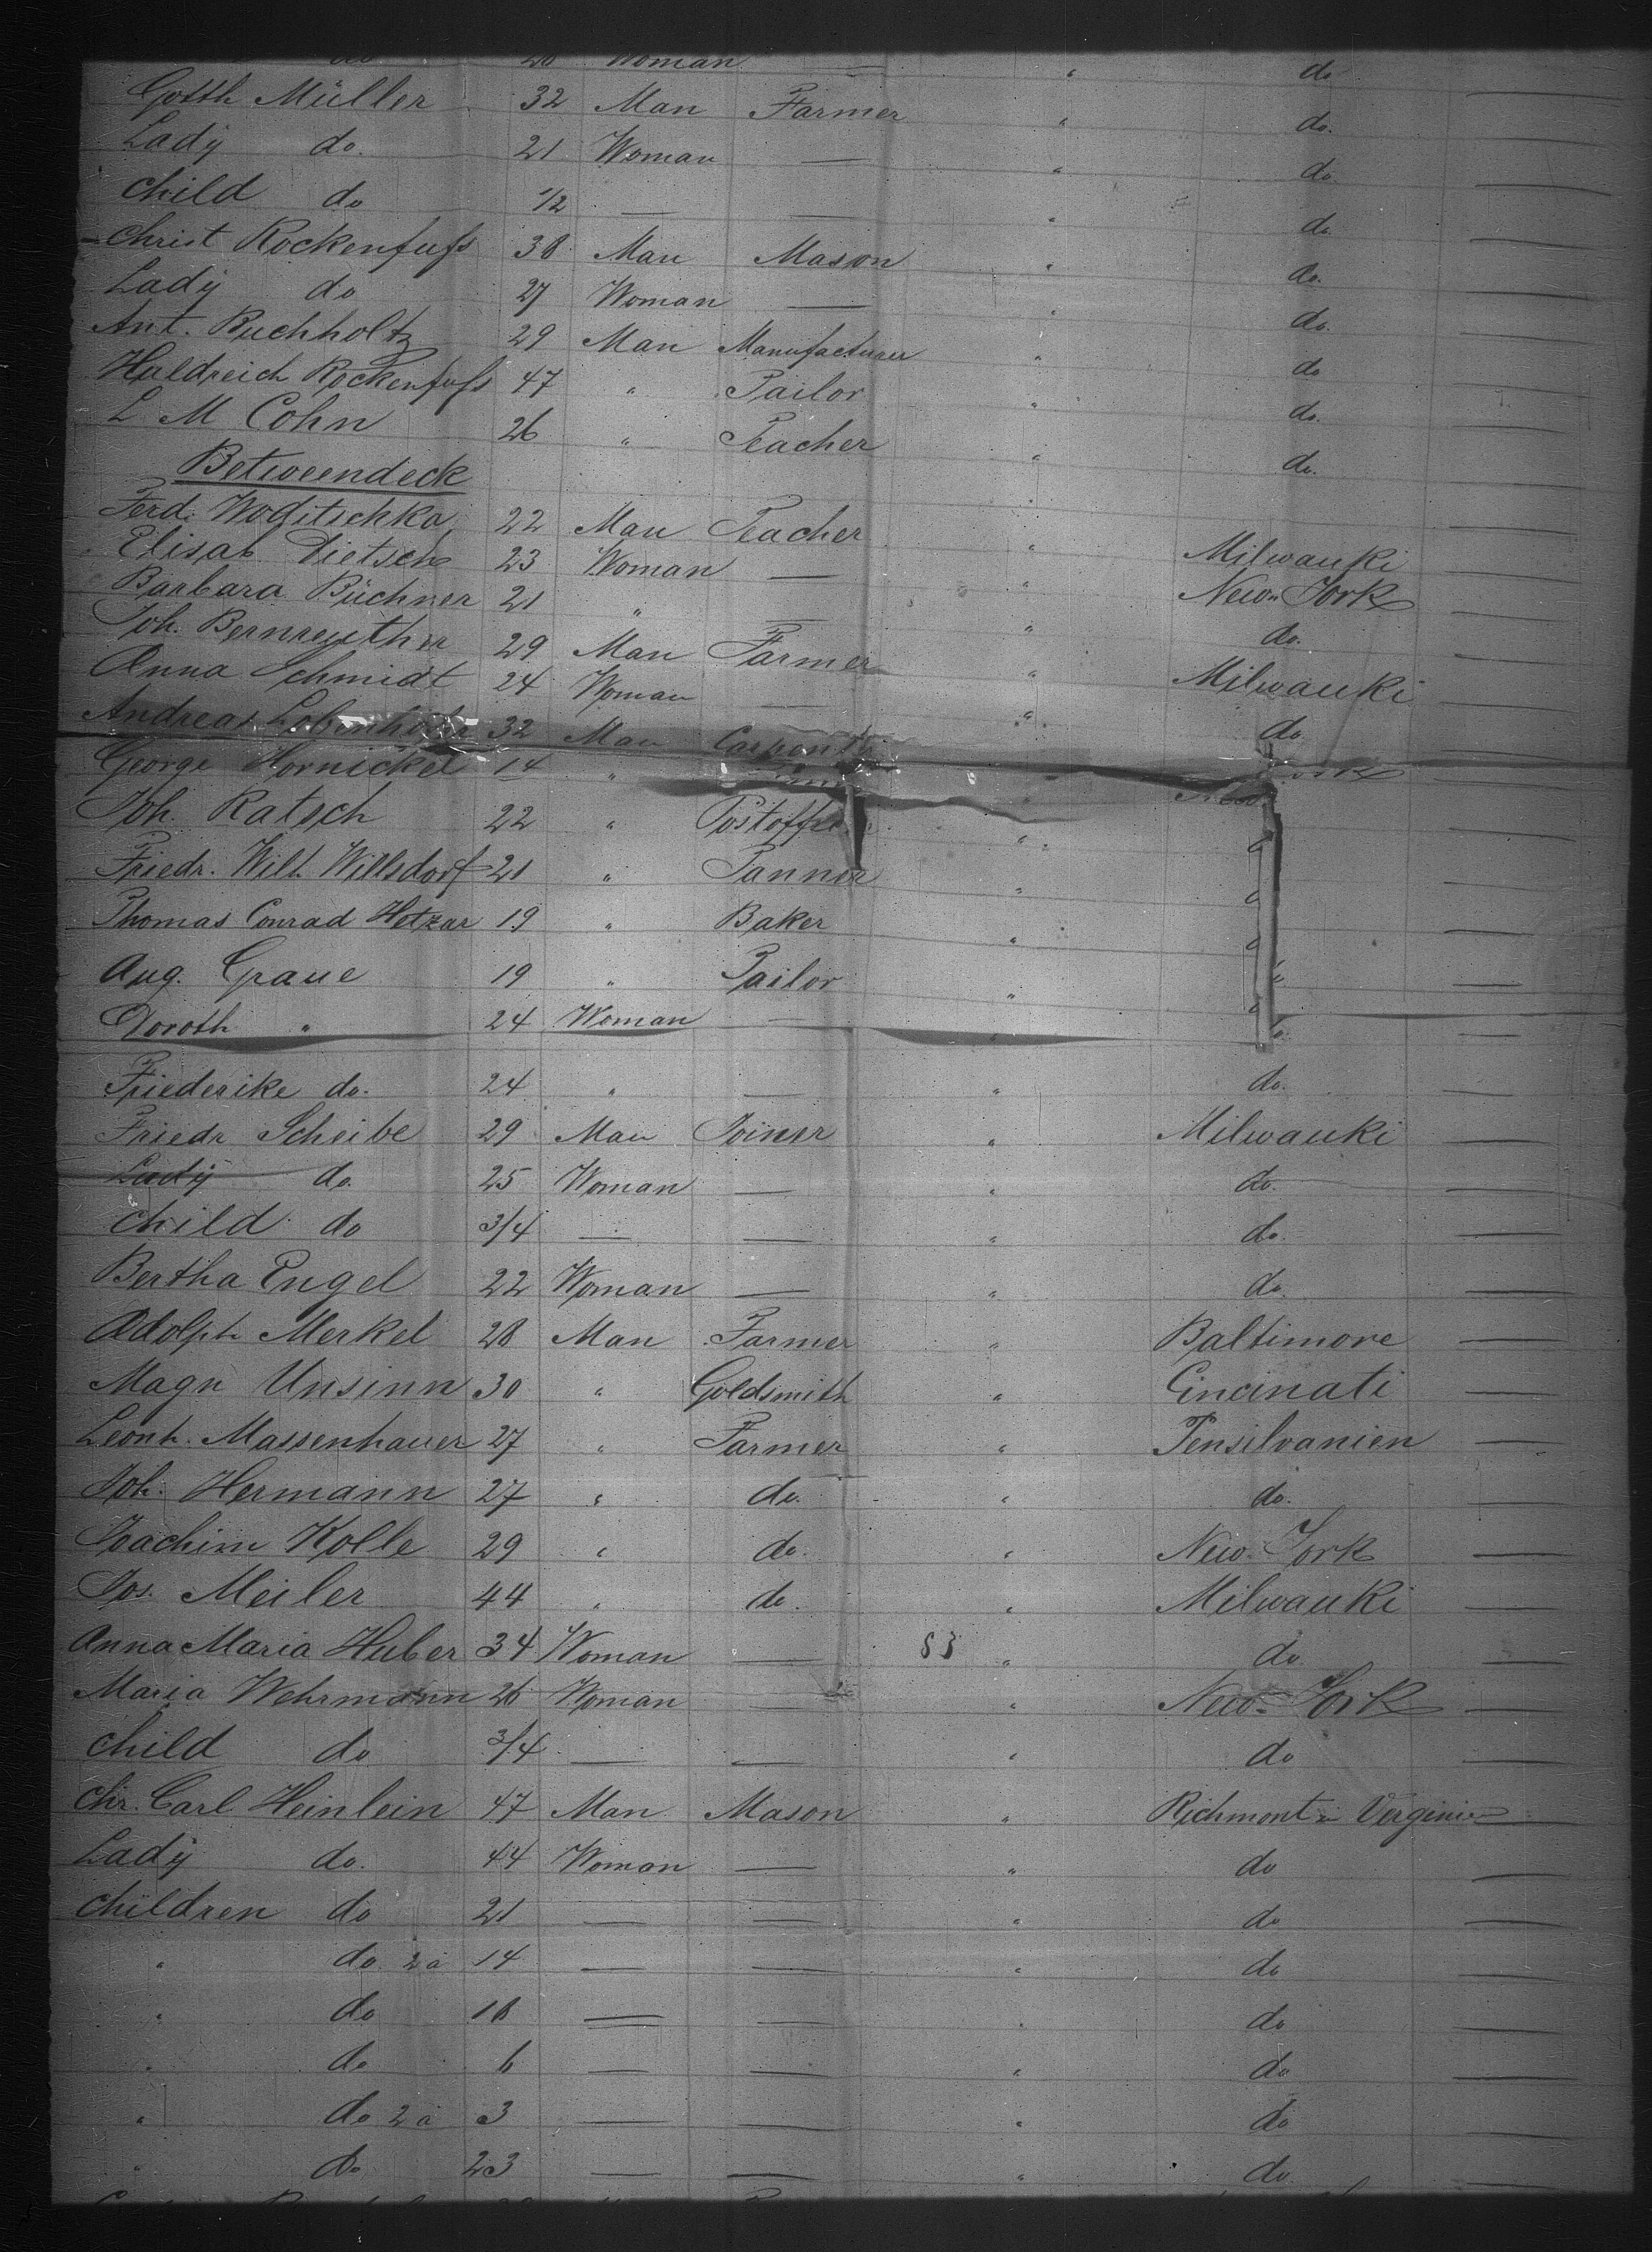 do 28 Woman — " do
Gotth Müller 32 Man Farmer " do.
Lady do. 21 Woman — " do.
child do 1/2 — — " do.
Christ Rockenfuss 38 Man Mason " do.
Lady do 27 Woman — " do.
Ant. Buchholtz 29 Man Manufacturer " do
Huldreich Rockenfuss 47 " Tailor " do.
L. M Cohn 26 " Teacher " do.
Betweendeck
Ferd. Wogitschka 22 Man Teacher " Milwauki
Elisab. Dietsch 23 Woman — " New-York
Barbara Büchner 21 " — " do.
Joh. Bernreuther 29 Man Farmer " Milwauki
Anna Schmidt 24 Woman — " do
Andreas 32 Man
George Hornickel 14 "
Joh. Ratsch 22 " "
Friedr. Wilh. Willsdorf 21 " Tanner "
Thomas Conrad Hetzar 19 " Baker "
Aug. Graue 19 " Tailor "
Doroth " 24 Woman — "
Friederike do. 24 " — " do.
Friedr Scheibe 29 Man Joiner " Milwauki
Lady do. 25 Woman — " do.
child do 3/4 — — " do.
Bertha Engel 22 Woman — " do.
Adolph Merkel 28 Man Farmer " Baltimore
Magn Unsinn 30 " Goldsmith " Cincinati
Leonh. Massenhauer 27 " Farmer " Pensilvanien
Joh. Hermann 27 " do. " do.
Joachim Kolle 29 " do. " New-York
Jos. Meiler 44 " do. " Milwauki
Anna Maria Huber 34 Woman — 83 " do
Maria Wehrmann 26 Woman — " New-York
child do 3/4 — — " do
Chr. Carl Heinlein 47 Man Mason " Richmont in Verginien
Lady do. 44 Woman — " do
children do 21 — — " do
" do. 2 a 14 — — " do
" do 18 — — " do
" do 6 — — " do
" do 2 a 3 — — " do
" do 23 — — " do.